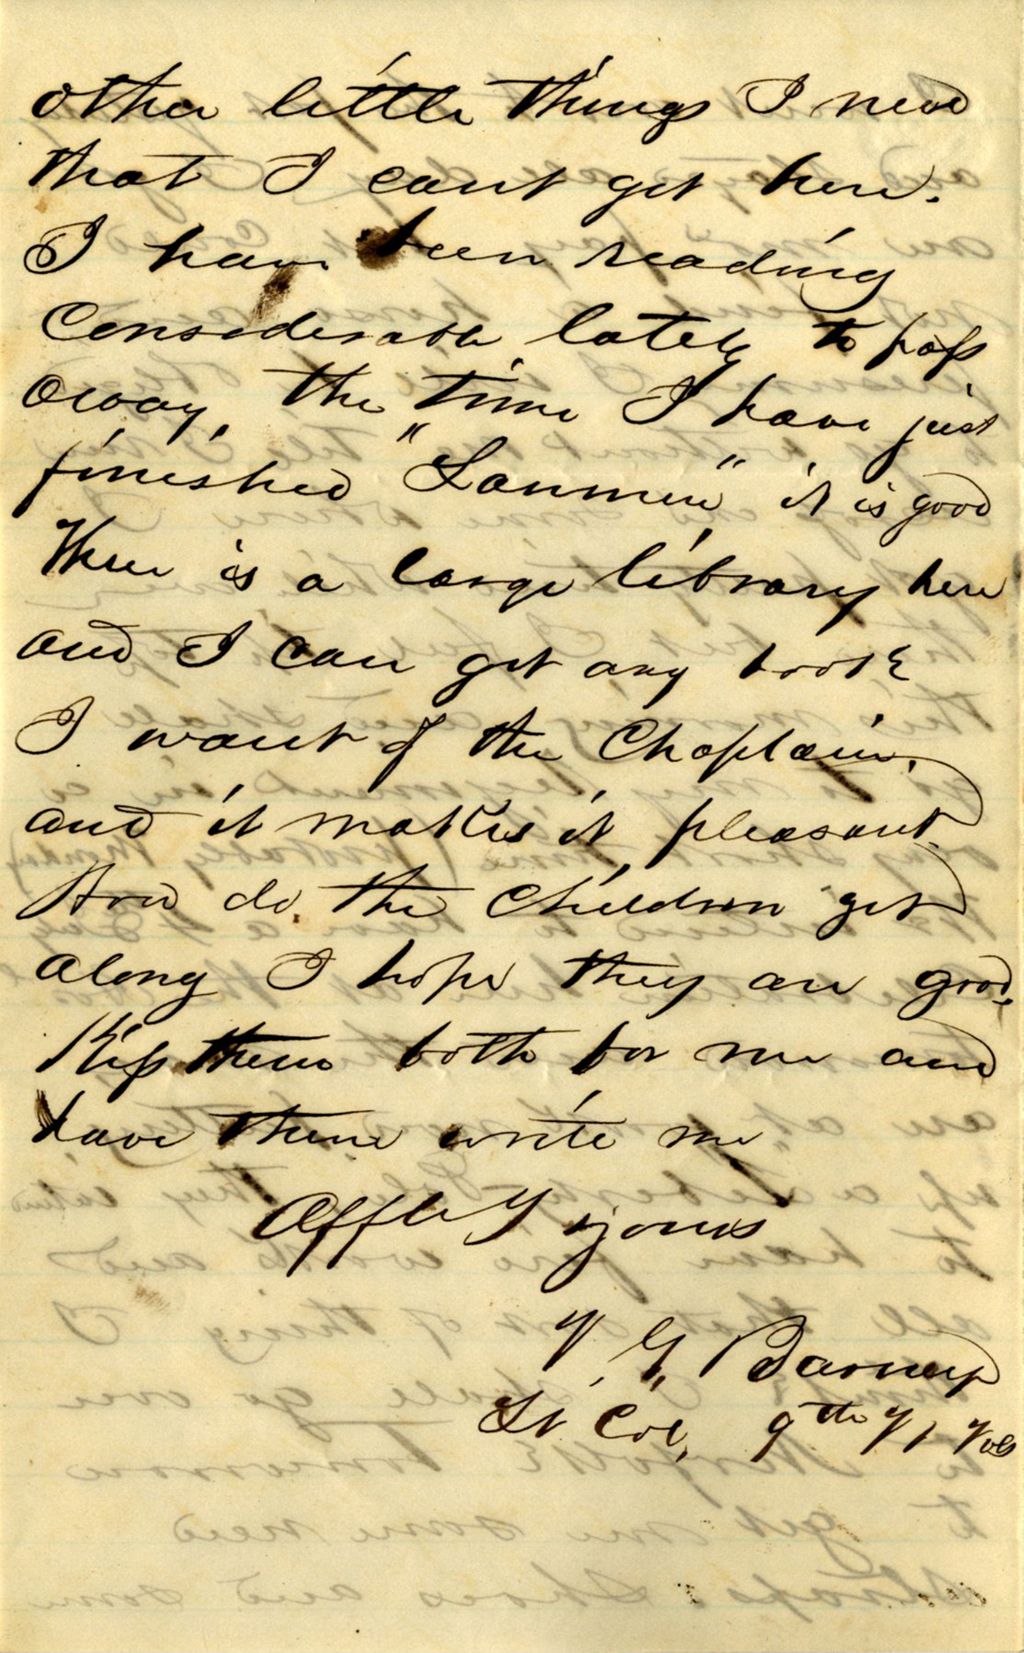 other little things I need
that I cant get here.
I have been reading
Considerable lately to pass
away, the time I have just
finished " " it is good
There is a large library here
and I can get any book
I want of the Chaplain.
and it makes it pleasant.
How do the Children get
along I hope they are good.
Kiss them both for me and
have them write me
Affly yours
V. G. Barney
Lt Col, 9th Vt Vols